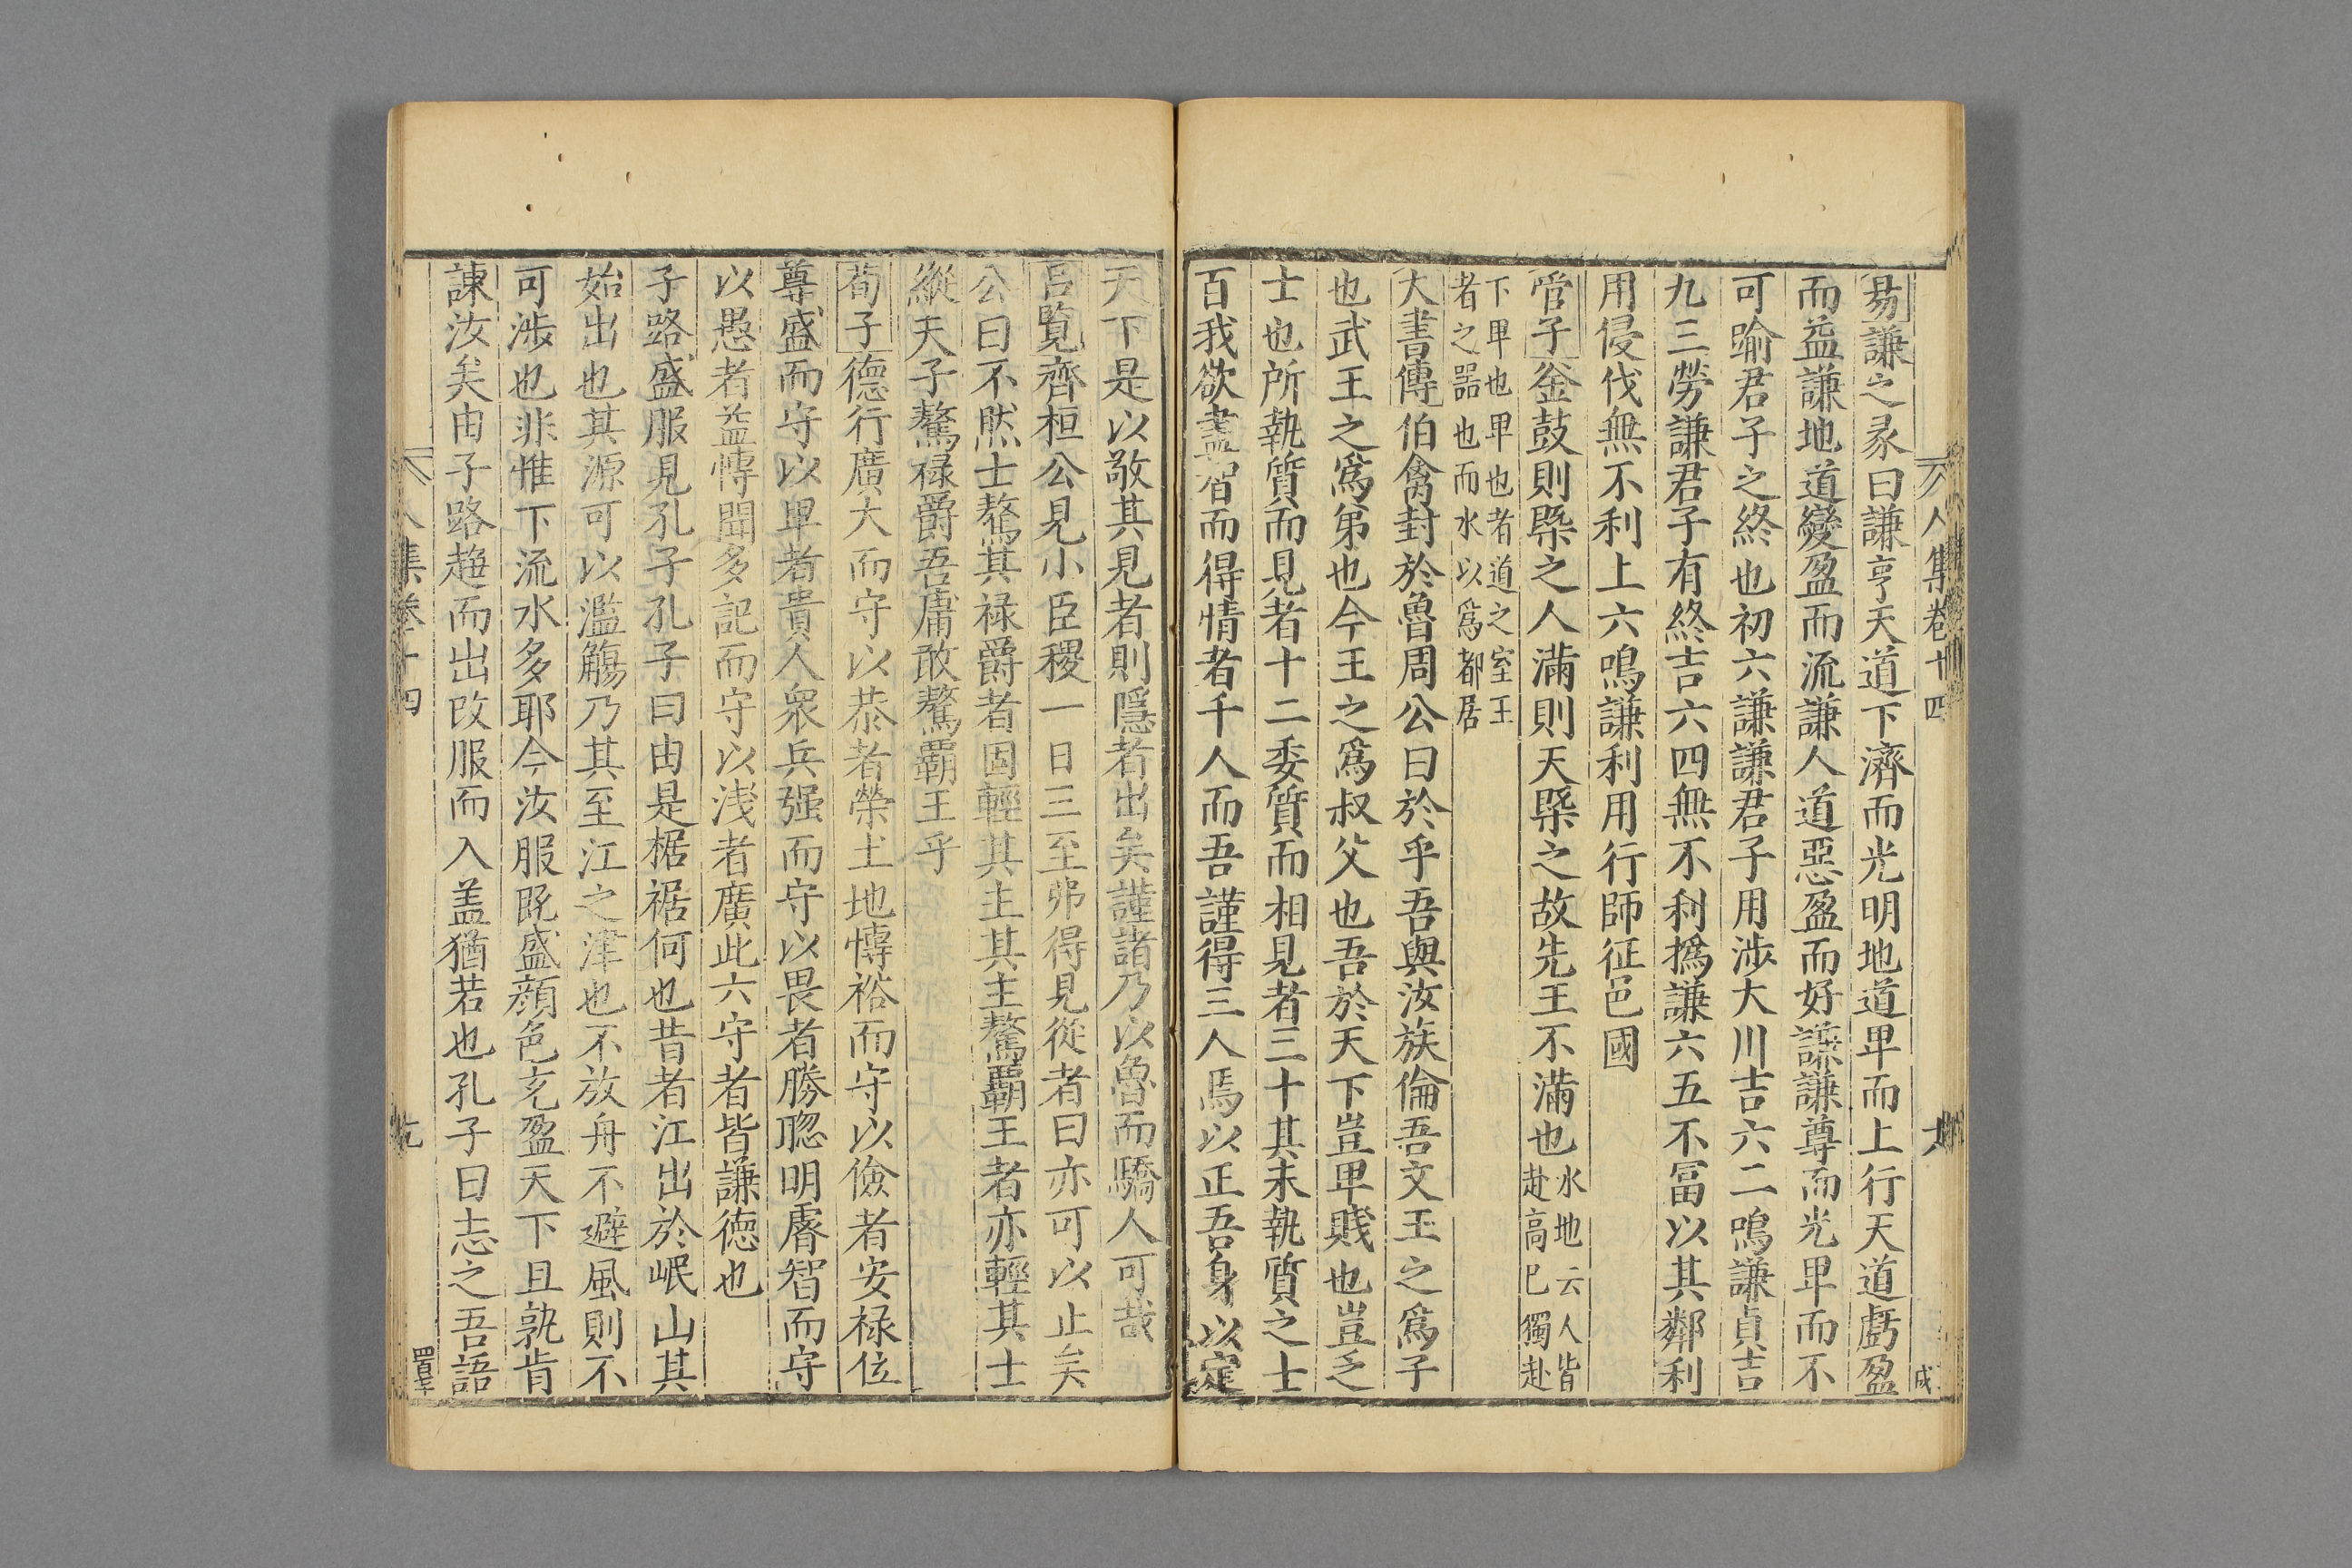 人集卷十四
六
成
易謙之彖曰謙亨天道下濟而光明地道卑而上行天道虧盈
而益謙地道變盈而流謙人道惡盈而好謙謙尊而光卑而不
可踰君子之終也初六謙謙君子用涉大川吉六二鳴謙貞吉
九三勞謙君子有終吉六四無不利撝謙六五不冨以其鄰利
用侵伐無不利上六鳴謙利用行師征邑國
管子釡鼓則槩之人滿則天槩之故先王不滿也水地云人皆
赴高己獨赴
下卑也卑也者道之室王
者之器也而水以爲都居
大書傳伯禽封於魯周公曰於乎吾與汝族倫吾文王之爲子
也武王之爲弟也今王之爲叔父也吾於天下豈卑賤也豈乏
士也所執質而見者十二委質而相見者三十其未執質之士
百我欲盡智而得情者千人而吾謹得三人焉以正吾身以定
天下是以敬其見者則隱者出矣謹諸乃以魯而驕人可哉
吕覧齊桓公見小臣稷一日三至弗得見從者曰亦可以止矣
公曰不然士驁其禄爵者固輕其主其主驁覇王者亦輕其士
縱天子驁禄爵吾庸敢驁覇王乎
荀子德行廣大而守以恭者榮土地慱裕而守以儉者安禄位
尊盛而守以卑者貴人衆兵强而守以畏者勝聦明睿智而守
以愚者益慱聞多記而守以浅者廣此六守者皆謙徳也
子路盛服見孔子孔子曰由是椐裾何也昔者江出於岷山其
始出也其源可以濫觴乃其至江之津也不放舟不避風則不
可涉也非惟下流水多耶今汝服既盛顔色充盈天下且孰肯
諫汝矣由子路趨而出改服而入盖猶若也孔子曰志之吾語
集卷十四